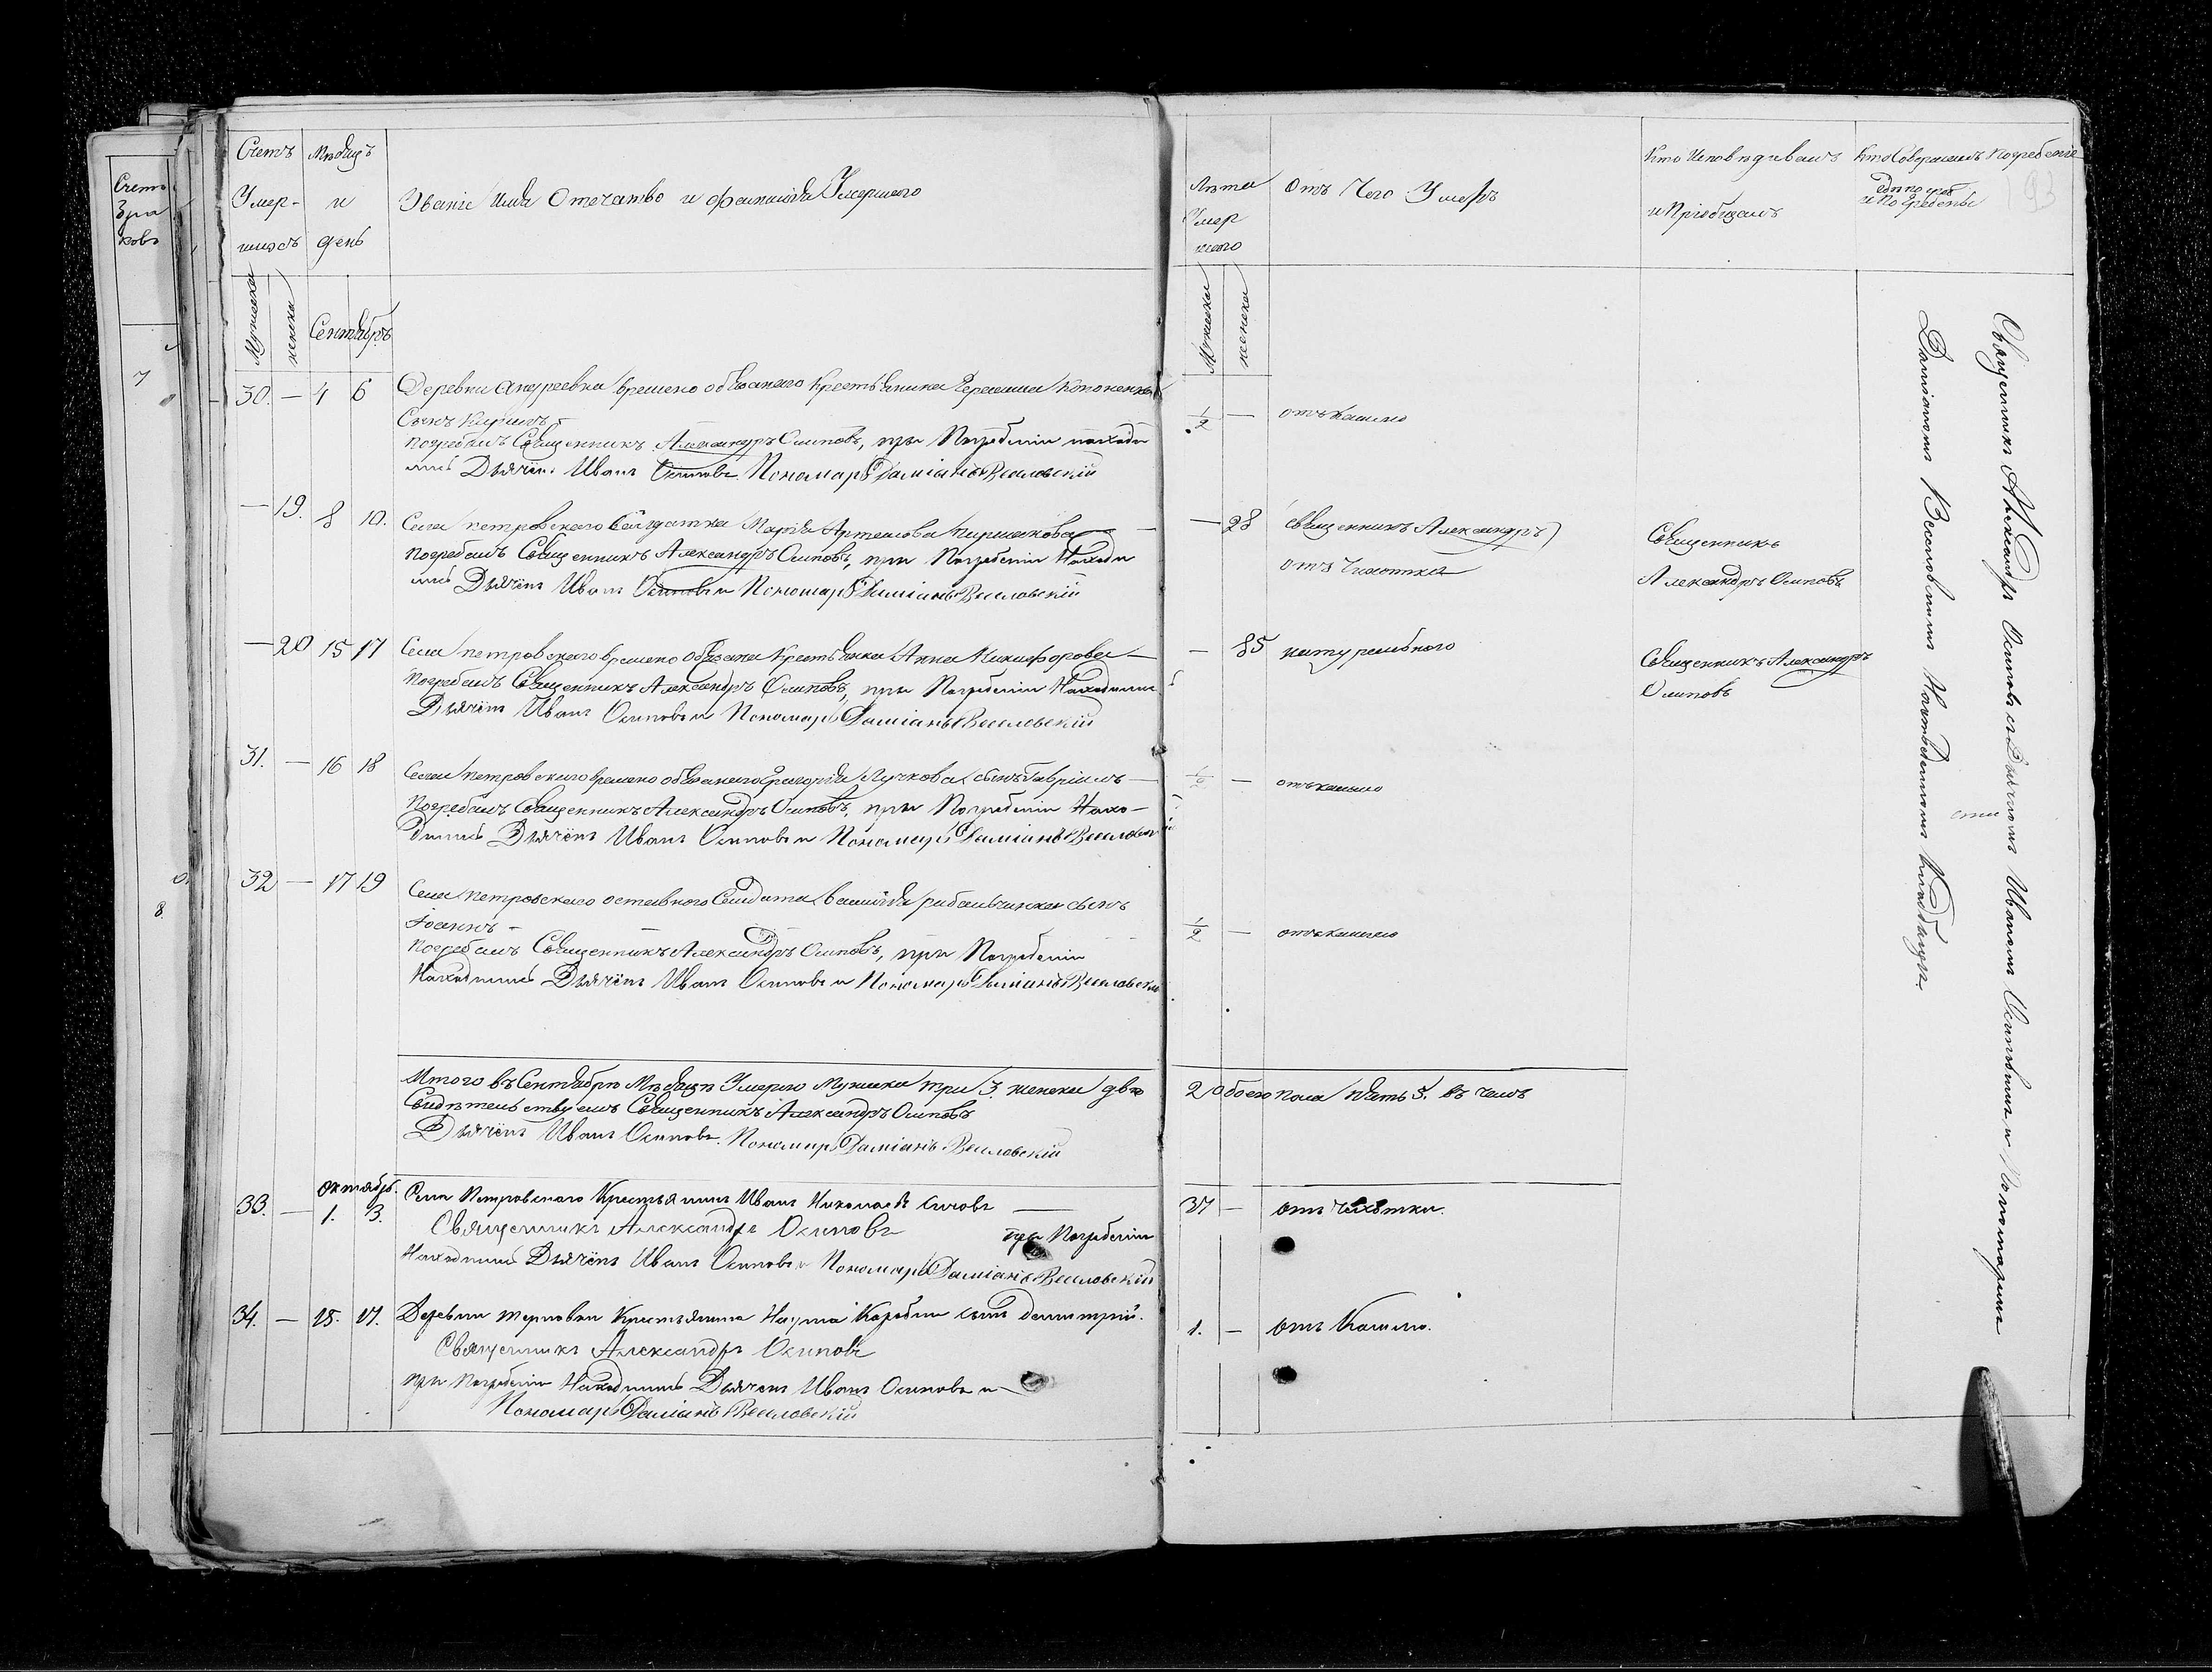 Счетъ Умершихъ
Мѣсяцъ и день
Званіе Имя Отечатво и фамилія Умершаго
Лѣта Умершаго
Отъ Чего Умеръ
Кто Исповѣдивалъ и Пріобщалъ
Кто Совершалъ Погребеніе и Погребены
93
Мужеска
женска
Сентябрь
Мужеска
женска
30. — 4 6 Деревни Андреевки временно обязанаго Крестьянина Герасима
Сынъ
погребалъ Священникъ Александръ Осиповъ, при Погребеніи находи
лись Дьячёкъ Иванъ Осиповъ Пономарь Даміанъ Веселовскій
1/2 — отъ кашлю
— 19. 8 10. Села петровскаго Салдатка Марія Артемова —
погребалъ Священникъ Александръ Осиповъ, при Погребеніи Находи
лись Дьячёкъ Иванъ Осиповъ и Пономарь Даміанъ Веселовскій
— 28 священникъ Александръ
отъ Чихотки
Священникъ
Александръ Осиповъ
— 20 15 17 Села петровскаго временно обязана Крестьянка Анна Никифорова —
погребалъ Священникъ Александръ Осиповъ, при Погребеніи Находились
Дьячёкъ Иванъ Осиповъ и Пономарь Даміанъ Веселовскій
— 85 натуральнаго
Священникъ Александръ
Осиповъ
31. — 16 18 Села петровскаго временно обязанаго Григорія Лучкова сынъ Гавріилъ —
Погребалъ Священникъ Александръ Осиповъ, при Погребеніи Нахо-
дились Дьячёкъ Иванъ Осиповъ и Пономарь Даміанъ Веселовскій
1/2 — отъ кашлю
32 — 17 19 Села петровскаго оставного Салдата Василія рибальчинка сынъ
Іоаннъ —
погребалъ Священникъ Александръ Осиповъ, при Погребеніи
Находились Дьячёкъ Иванъ Осиповъ и Пономарь Даміанъ Веселовскій
1/2 — отъ кашлю
Итого въ Сентябрѣ Мѣсяцѣ Умерло Мужска три 3. женска двѣ 2 обоего пола пять 5. въ чемъ
Свидѣтельствуемъ Священникъ Александръ Осиповъ
Дьячёкъ Иванъ Осиповъ. Пономарь Даміанъ Веселовскій
Октябрь.
33. — 1. 3. Села Петровскаго Крестьянинъ Иванъ Николаевъ —
Священникъ Александръ Осиповъ при Погребеніи
Находились Дьячёкъ Иванъ Осиповъ и Пономарь Даміанъ Веселовскій
37 — отъ чахотки.
34. — 15. 17. Деревни Терновки Крестьянина Наума сынъ Димитрій.
Священникъ Александръ Осиповъ
при Погребеніи Находились Дьячекъ Иванъ Осиповъ и
Пономарь Даміанъ Веселовскій
1. — отъ Кашлю.
Священникъ Александръ Осиповъ съ Дьячкомъ Иваномъ Осиповымъ и Пономаремъ
Даміаномъ Веселовскимъ на приходскомъ кладбищѣ.